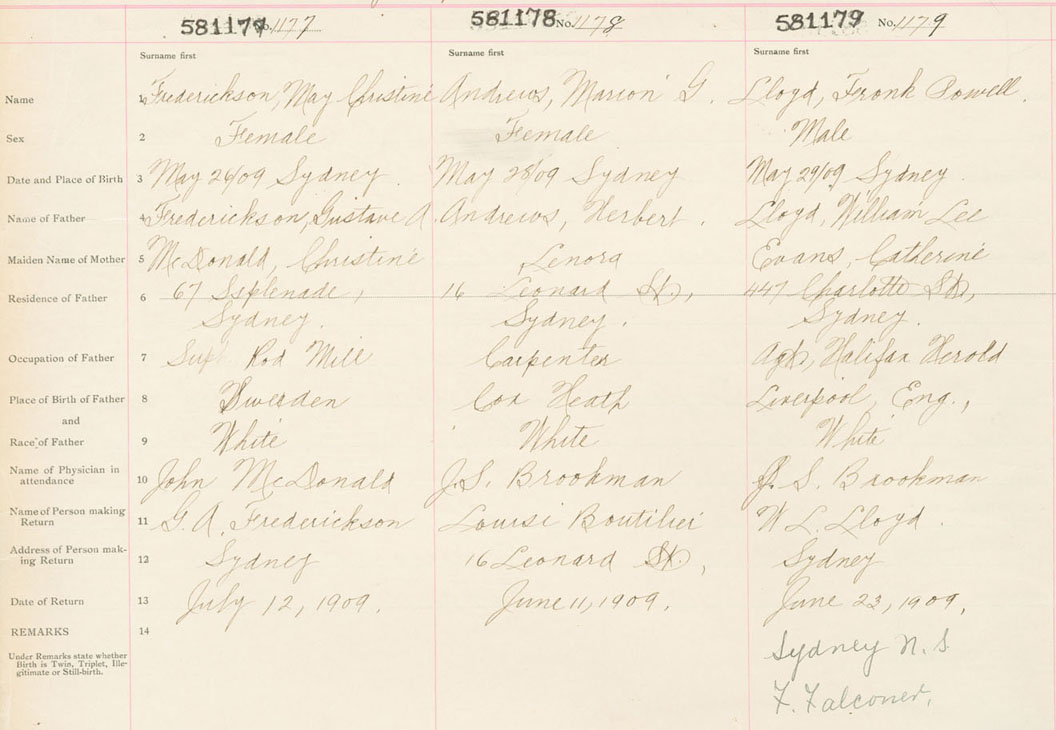 581177 No. 1177 581178 No. 1178 581179 No. 1179
Surname first Surname first Surname first
Name 1 Frederickson, May Christine Andrews, Marion G. Lloyd, Frank Powell.
Sex 2 Female Female Male
Date and Place of Birth 3 May 26/09 Sydney. May 28/09 Sydney May 29/09 Sydney.
Name of Father 4 Frederickson, Gustave A Andrews, Herbert. Lloyd, William Lee
Maiden Name of Mother 5 McDonald, Christine Lenora Evans, Catherine
Residence of Father 6 67 Esplenade, 16 Leonard St, 447 Charlotte St,
Sydney. Sydney. Sydney.
Occupation of Father 7 Supt Rod Mill Carpenter Agt, Halifax Herold
Place of Birth of Father 8 Swerden Cox Heath Liverpool, Eng.,
and
Race of Father 9 White White White
Name of Physician in
attendance 10 John McDonald J.S. Brookman J. S. Brookman
Name of Person making
Return 11 G. A. Frederickson Louisi Boutilier W L. Lloyd.
Address of Person mak-
ing Return 12 Sydney 16 Leonard St, Sydney
Date of Return 13 July 12, 1909. June 11, 1909. June 23, 1909,
REMARKS 14
Sydney N. S.
Under Remarks state whether
Birth is Twin, Triplet, Ille-
gitimate or Still-birth.
F. Falconer,